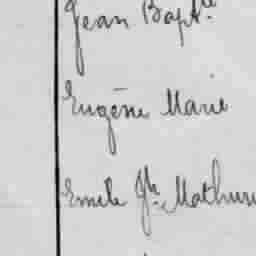 Jean Bapt.te
Eugène Marie
Emile Jh Mathurin